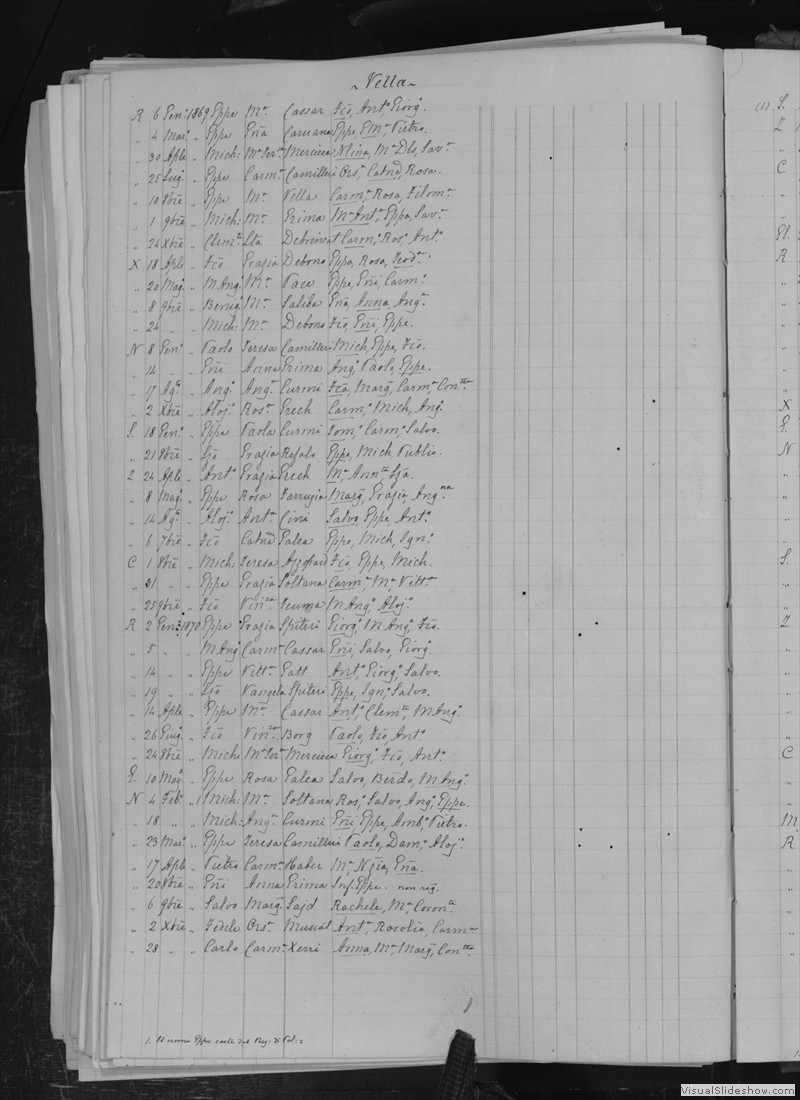 ~ Vella ~
R 6 Genº 1869 Eppe Mª Cassar Fcõ, Antº, Giorgº.
" 4 Marº " Eppe Gña Caruana Eppe, Emª, Pietro.
" 30 Aple " Mich: Mª Terª Mercieca Nlina, Mª Dls, Savª
" 25 Lugº " Eppe Carmª Camilleri Orsª, Catnã, Rosa.
" 10 8brẽ " Eppe Mª Vella Carmª, Rosa, Filomª
" 1 9brẽ " Mich: Mª Grima Mª Antª, Eppa, Savª
" 24 Xbrẽ " Clemte Lta Debrincat Carmº, Rosº, Antº
X 18 Aple " Fcõ Grazia Debono Eppa, Rosa, Teodª
" 20 Magº " M Angº Mª Pace Eppe, Gñi, Carmº
" 8 9brẽ " Benigº Mª Saliba Gña, Anna, Angª
" 24 " " Mich: Mª Debono Fcõ, Gñi, Eppe.
N 8 Genº " Paolo Teresa Camilleri Mich, Eppe, Fcõ.
" 14 " " Gñi Anna Grima Angº, Paolo, Eppe.
" 17 Agº " Angº Angª Curmi Fcã, Margª, Carmª Contta
" 2 Xbrẽ " Alojº Rosª Grech Carmº, Mich, Angº
S. 18 Genº " Eppe Paola Curmi Tomº, Carmº, Salvo.
" 21 8brẽ " Grazia Refalo Eppe, Mich, Publio.
Z 24 Aple " Antº Grazia Grech Mª, Annta
" 8 Magº " Eppe Rosa Farrugia Margª, Grazia, Angna
" 14 Agº " Alojº Antª Cini Salvo, Eppe, Antº
" 6 7brẽ " Fcõ Catnã Galea Eppe, Mich, Ignº
C 1 8brẽ " Mich: Teresa Azzopard Fcõ, Eppe, Mich.
" 31 " " Eppe Grazia Soltana Carmª, Mª, Vittª
" 25 9brẽ " Fcõ Vinza Xcuma M Angº, Alojº
R 2 Genº 1870 Eppe Grazia Spiteri Giorgº, M Angº, Fcõ.
" 5 " " M Angº Carmª Cassar Gñi, Salvo, Giorgº
" 14 " " Eppe Vittª Gatt Antº, Giorgº, Salvo.
" 19 " " Vangela Spiteri Eppe, Ignº, Salvo.
" 14 Aple " Eppe Mª Cassar Antº, Clemte, M Angº
" 26 Giugº " Fcõ Vinza Borg Paolo, Fcõ, Antº
" 24 8brẽ " Mich: Mª Terª Mercieca Giorgº, Fcõ, Antº
G. 10 Marº " Eppe Rosa Galea Salvo, Berdo, M Angº
N 4 Febº " 1 Mich: Mª Soltana Rosº, Salvo, Angº, Eppe.
" 18 " " Mich: Angª Curmi Gñi, Eppe, Ambº, Pietro.
" 23 Marº " Eppe Teresa Camilleri Paolo, Damº, Alojº
" 17 Aple " Pietro Carmª Haber Mª, Nzia, Gña.
" 20 8brẽ " Gñi Anna Grima Inf. Eppe. non reg.
" 6 9brẽ " Salvo Margª Sajd Rachele, Mª, Coronta
" 2 Xbrẽ " Fedele Orsª Muscat Antª, Rosolia, Carmª
" 28 " " Carlo Carmª Xerri Anna, Mª, Margª, Contta
1. Il nome Eppe
(1) S.
Z
C
Gl.
R
X
G.
N
S.
Z
C
M.
R
VisualSlideshow.com